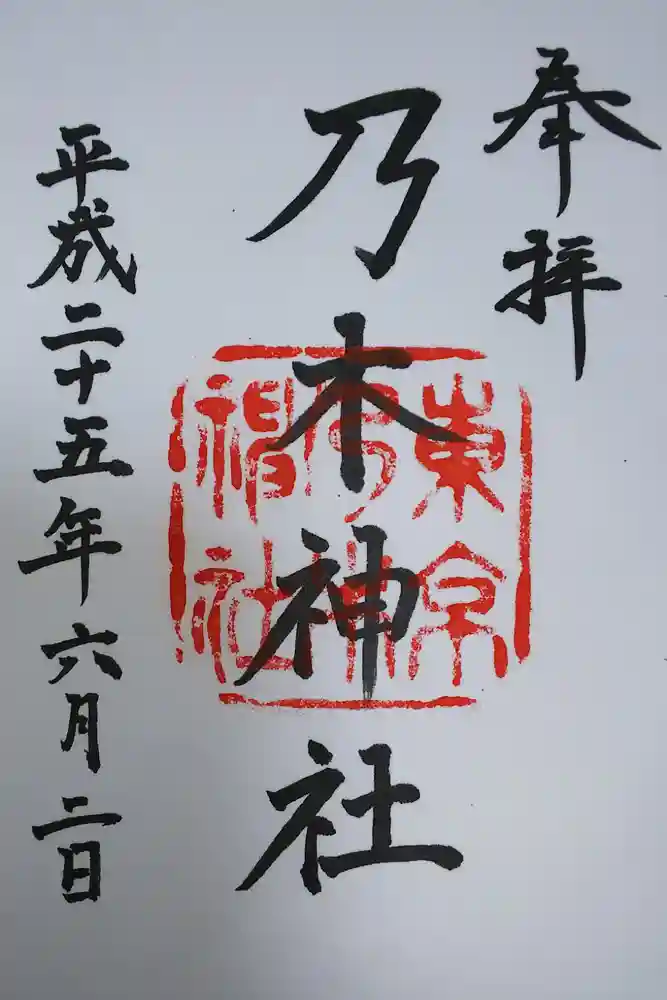 奉拝
乃木神社
東京
乃木
神社
平成二十五年六月二日